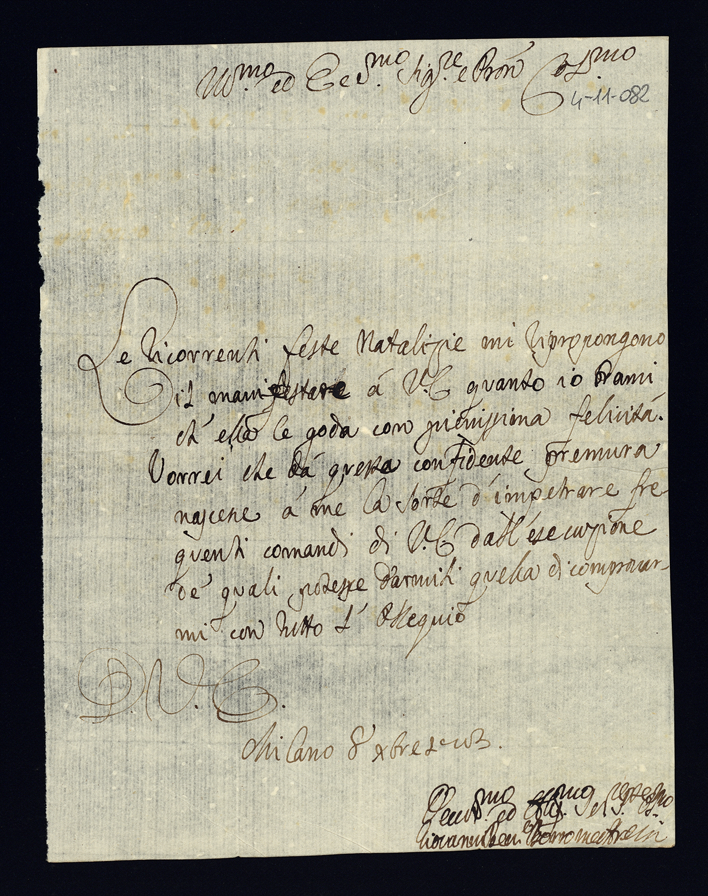 Ill.mo ed Ecc.mo Sig.re e Pron Col.mo
4-11-082
Le ricorrenti feste Natalizie mi ripropongono
il manifestare á V.E. quanto io brami
ch' ella le goda con pienissima felicitá.
Vorrei che dá questa confidente premura
nascesse á me la sorte d'impetrare fre
quenti comandi di V.E. dall'esecuzione
de' quali potesse darmisi quella di comprovar-
mi con tutto l'Ossequio
D V. E.
Milano 8 xbre
Giovanni Borromeo